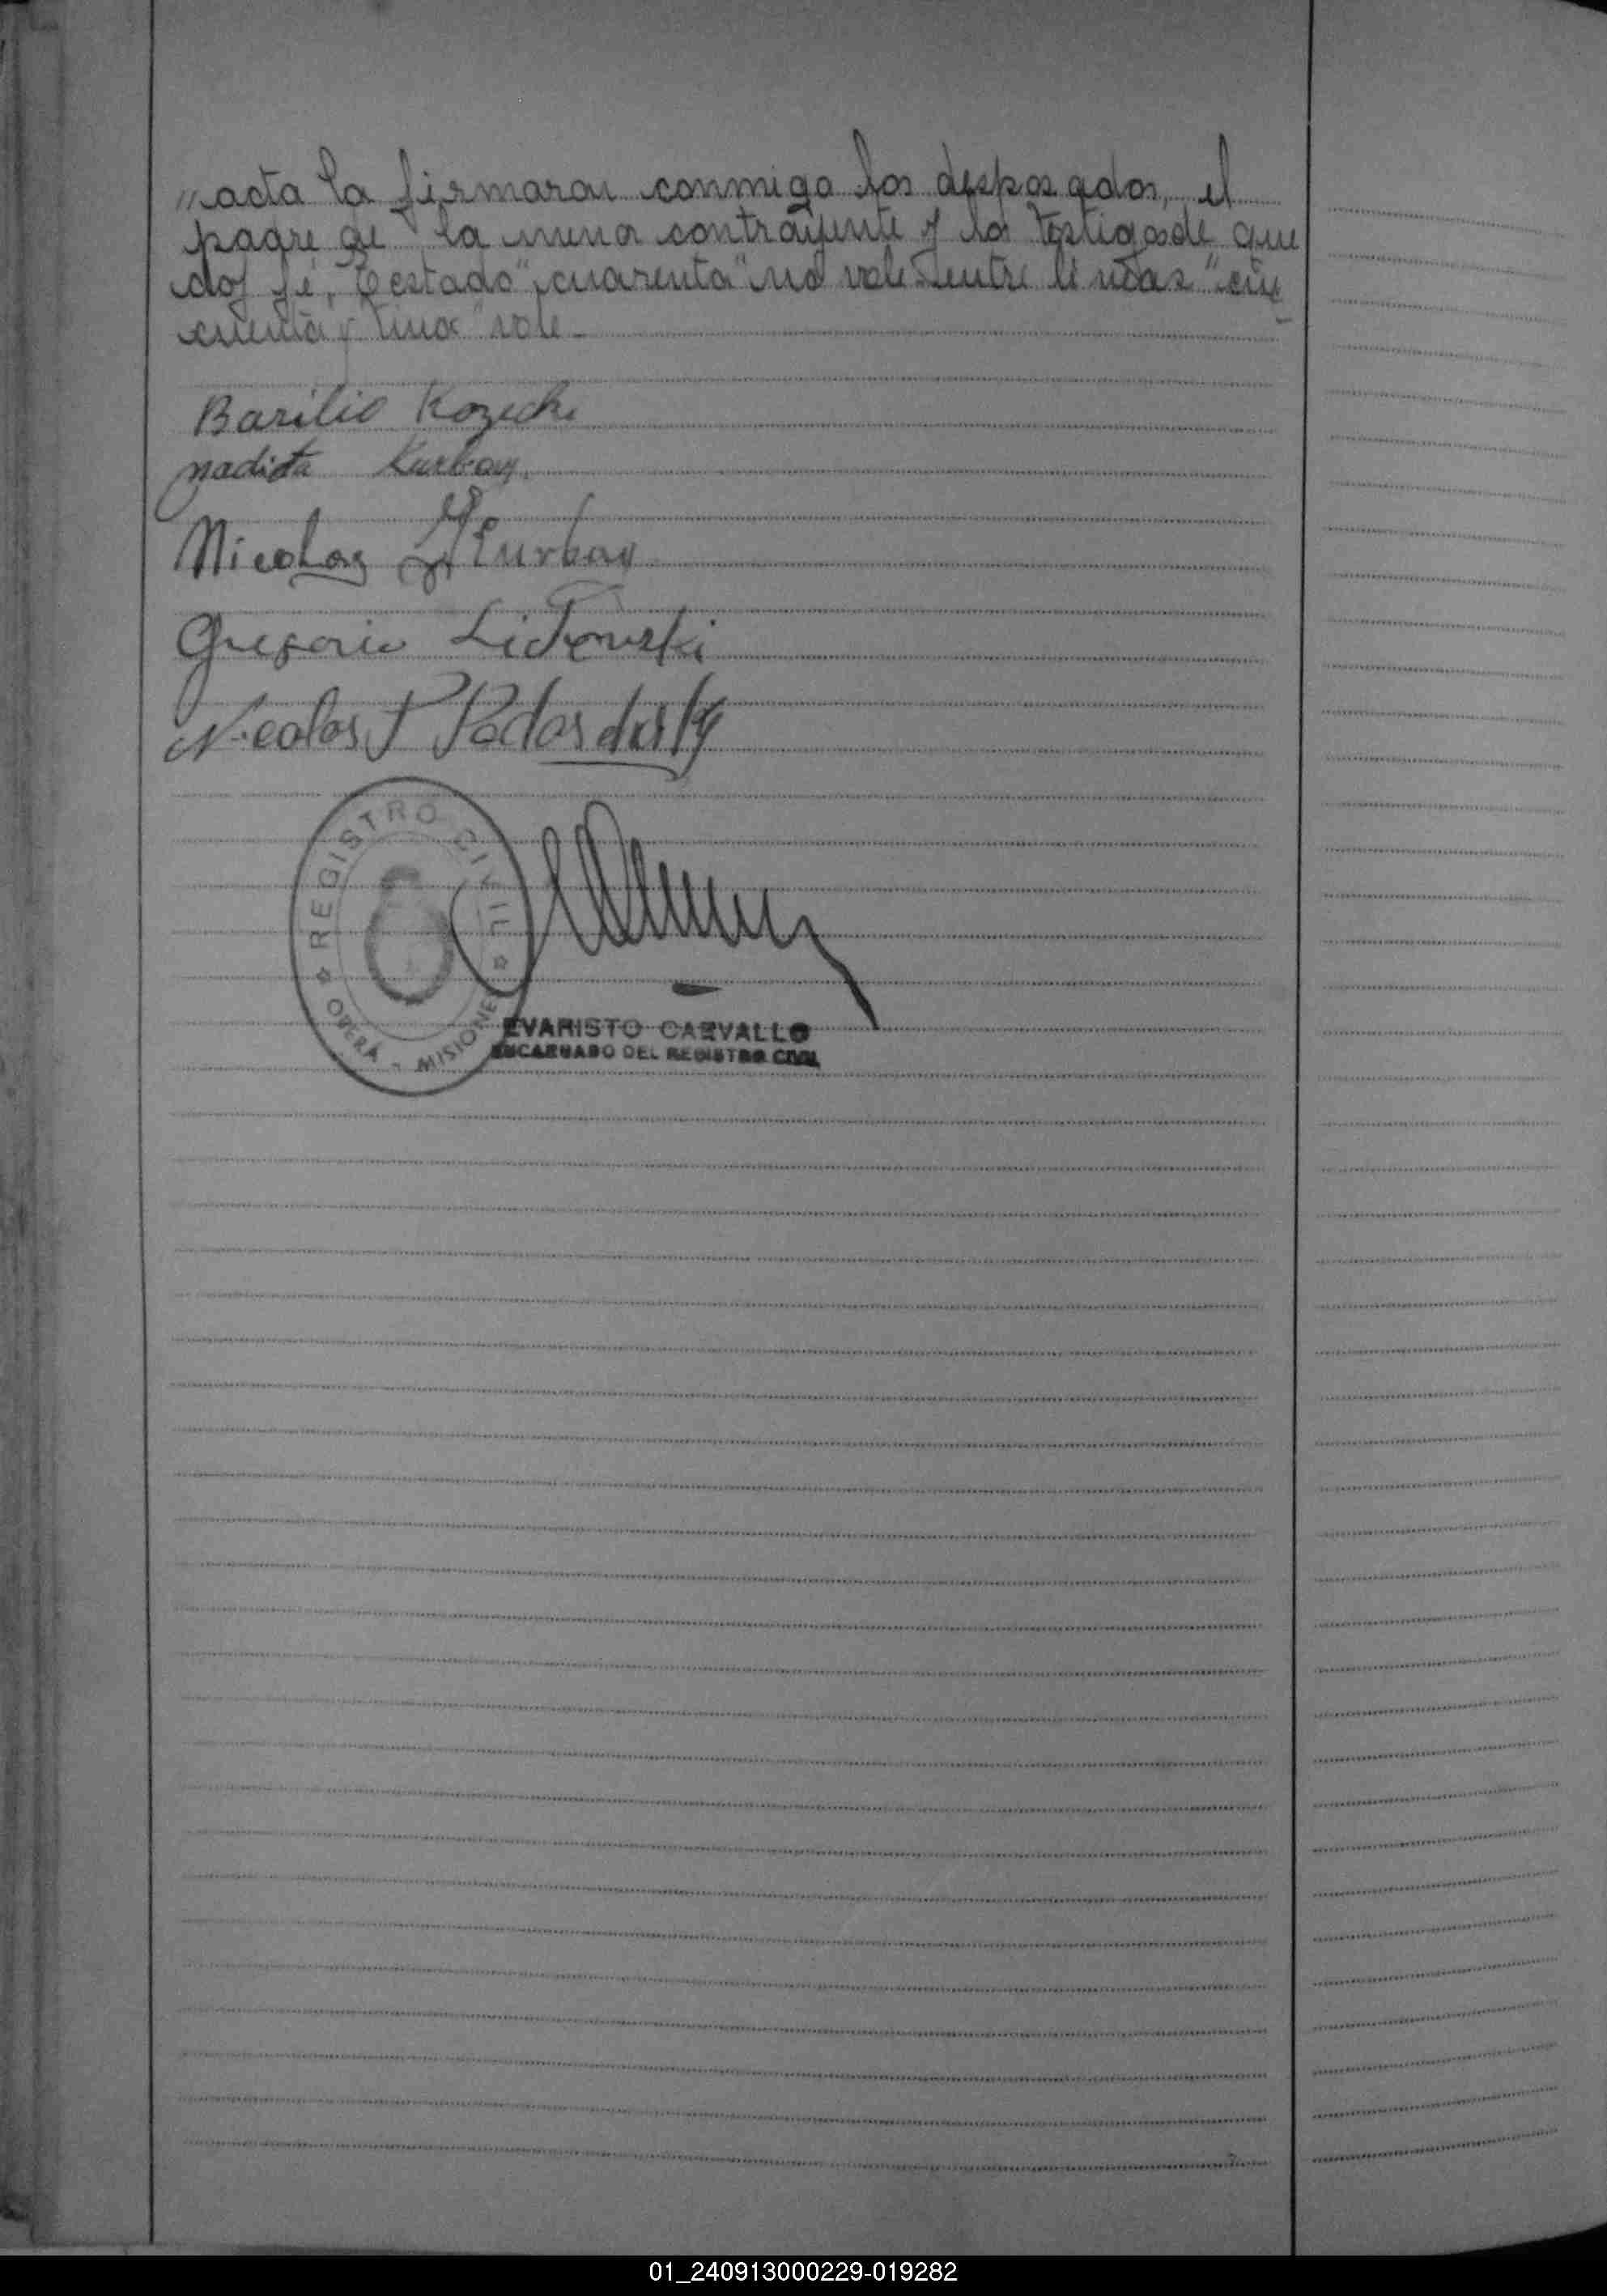 "acta la firmaron conmigo los desposados, el
padre de la menor contrayente y los testigos de que
doy fé. Testado "cuarenta" no vale - entre lineas "cin
cuenta y" vale -
Basilio Kozechi
nadista Kurbay.
Nicolas Kurbay
Gregorio
Nicolas
REGISTRO CIVIL
OBERÁ - MISIONES
EVARISTO CARVALLO
ENCARGADO DEL REGISTRO CIVIL
01_240913000229-019282